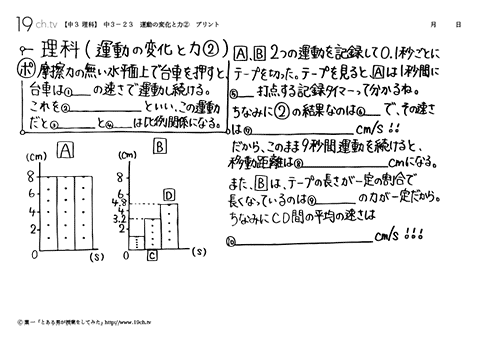 19 ch.tv 【中3 理科】 中3-23 運動の変化と力② プリント
月 日
理科(運動の変化と力②)
ポ 摩擦力の無い水平面上で台車を押すと、
台車は①___の速さで運動し続ける。
これを②___といい、この運動
だと③___と④___は比例関係になる。
A、B 2つの運動を記録して0.1秒ごとに
テープを切った。テープを見ると、Aは1秒間に
⑤___打点する記録タイマーって分かるね。
ちなみに②の結果なのは⑥___で、その速さ
は⑦___cm/s!!
だから、このまま9秒間運動を続けると、
移動距離は⑧___cmになる。
また、Bは、テープの長さが一定の割合で
長くなっているのは⑨___の力が一定だから。
ちなみにCD間の平均の速さは
⑩___cm/s!!!
A
(cm)
8
6
4
2
0
(s)
B
(cm)
8
6
4.8
4
3.2
2
0
(s)
C
D
© 葉一「とある男が授業をしてみた」http://www.19ch.tv